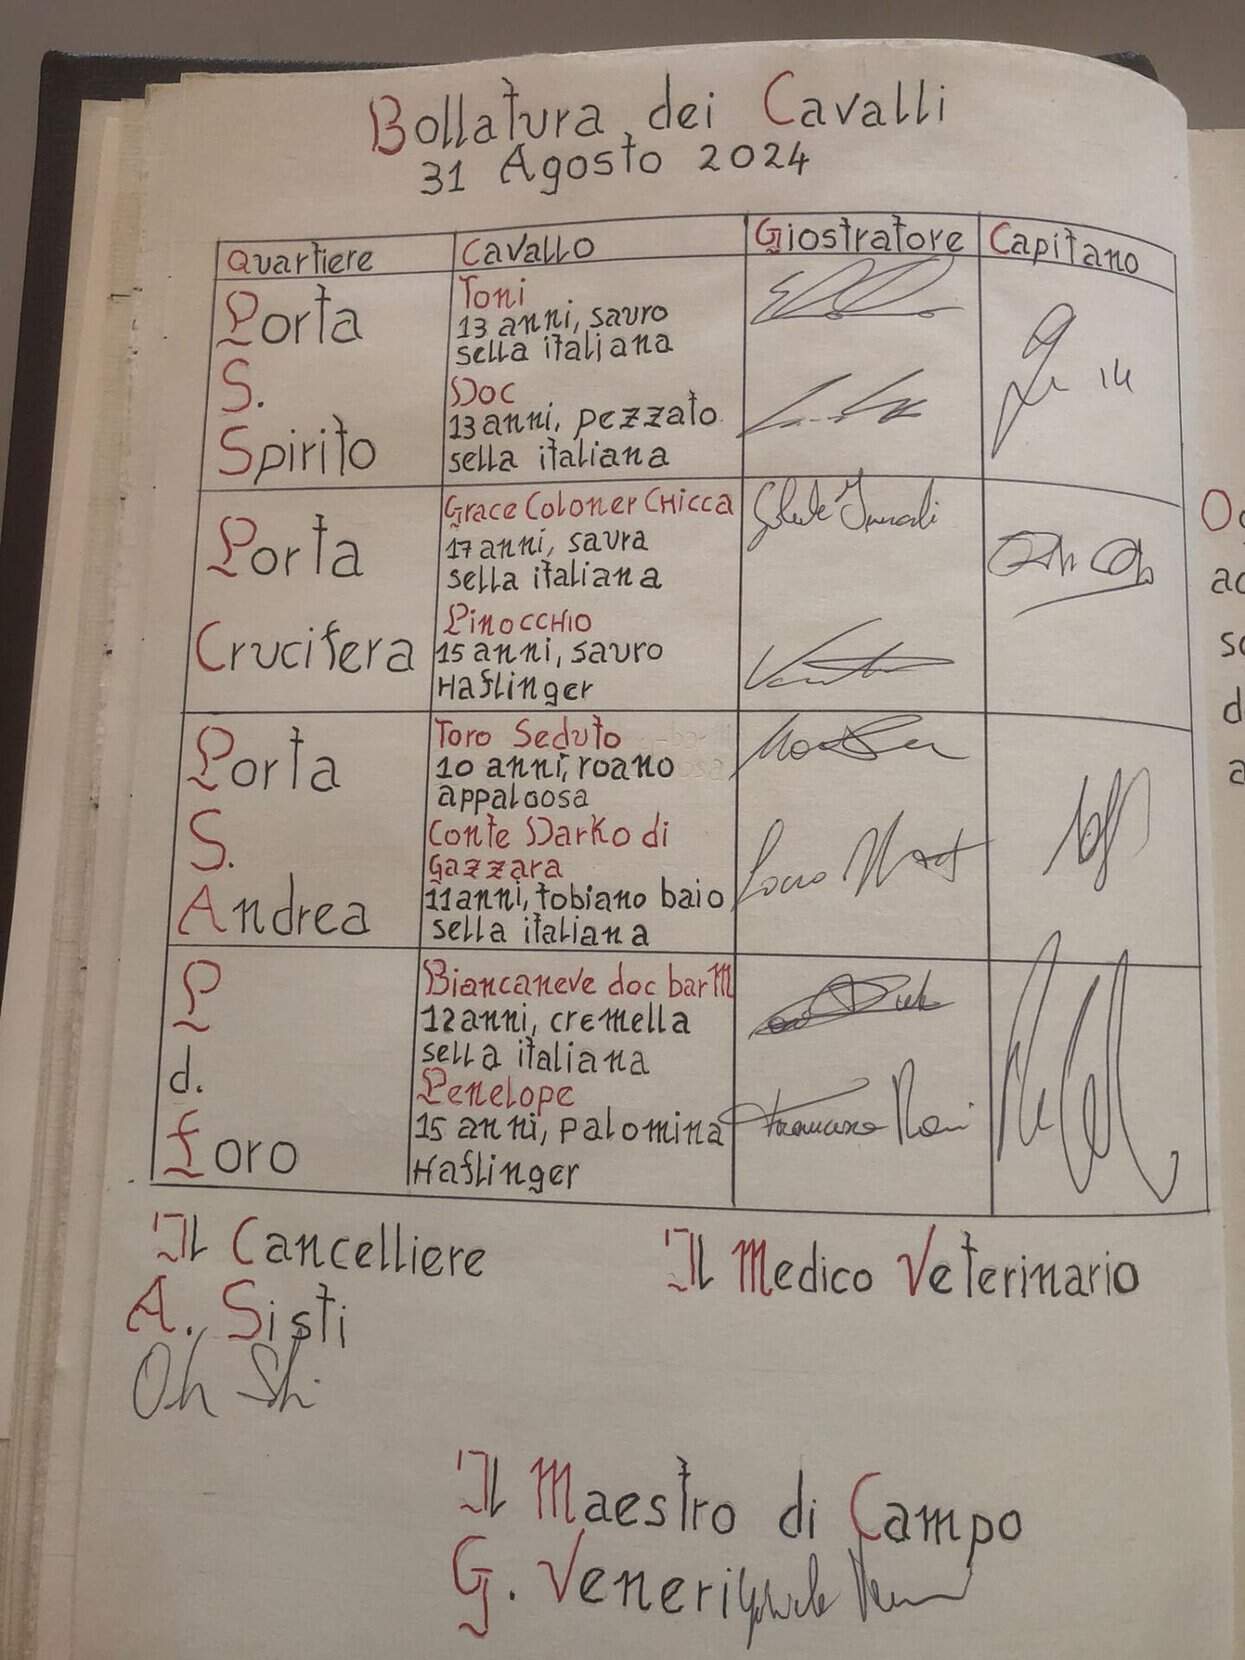 Bollatura dei Cavalli
31 Agosto 2024
Quartiere Cavallo Giostratore Capitano
Porta
S.
Spirito
Toni
13 anni, sauro
sella italiana
Doc
13 anni, pezzato
sella italiana
Porta
Crucifera
Grace Coloner Chicca
17 anni, saura
sella italiana
Pinocchio
15 anni, sauro
Haflinger
Porta
S.
Andrea
Toro Seduto
10 anni, roano
appaloosa
Conte Darko di
Gazzara
11 anni, tobiano baio
sella italiana
P
d.
Foro
Biancaneve doc bar M
12 anni, cremella
sella italiana
Penelope
15 anni, palomina
Haflinger
Francesco
Il Cancelliere
A. Sisti
Il Medico Veterinario
Il Maestro di Campo
G. Veneri